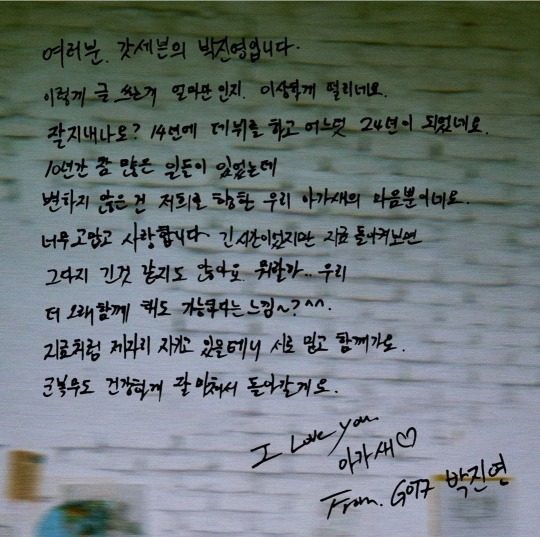 여러분. 갓세븐의 박진영입니다.
이렇게 글 쓰는게 얼마만인지. 이상하게 떨리네요.
잘지내나요? 14년에 데뷔를 하고 어느덧 24년이 되었네요.
10년간 참 많은 일들이 있었는데
변하지 않은건 저희를 향한 우리 아가새의 마음뿐이네요.
너무 고맙고 사랑합니다. 긴 시간이었지만 지금 돌아켜보면
그다지 긴것 같지도 않아요. 뭐랄까.. 우리
더 오래함께 해도 가능하다는 느낌~? ^^.
지금처럼 제자리 지키고 있을테니 서로 믿고 함께가요.
군복무도 건강하게 잘 마쳐서 돌아갈게요.
I Love you
아가새♡
From. GOT7 박진영